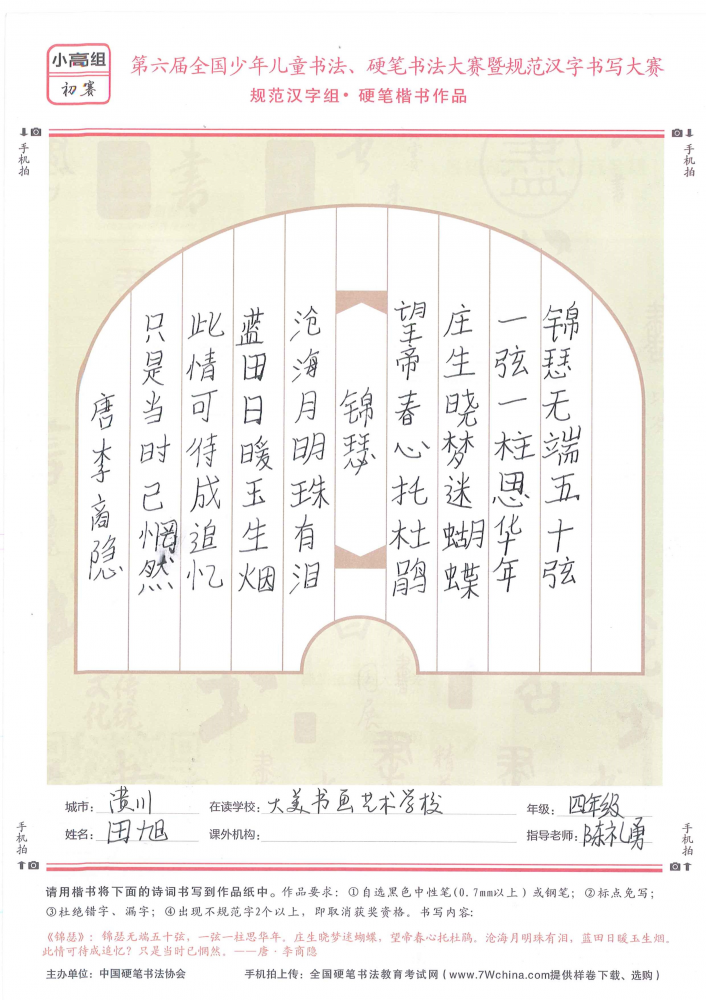 小高组
初赛
第六届全国少年儿童书法、硬笔书法大赛暨规范汉字书写大赛
规范汉字组·硬笔楷书作品
手机拍
手机拍
锦瑟无端五十弦
一弦一柱思华年
庄生晓梦迷蝴蝶
望帝春心托杜鹃
锦瑟
沧海月明珠有泪
蓝田日暖玉生烟
此情可待成追忆
只是当时已惘然
唐李商隐
城市：潢川
在读学校：大美书画艺术学校
年级：四年级
姓名：田旭
课外机构：
指导老师：陈礼勇
手机拍
手机拍
请用楷书将下面的诗词书写到作品纸中。作品要求：①自选黑色中性笔(0.7mm以上)或钢笔；②标点免写；
③杜绝错字、漏字；④出现不规范字2个以上，即取消获奖资格。书写内容：
《锦瑟》：锦瑟无端五十弦，一弦一柱思华年。庄生晓梦迷蝴蝶，望帝春心托杜鹃。沧海月明珠有泪，蓝田日暖玉生烟。
此情可待成追忆？只是当时已惘然。——唐·李商隐
主办单位：中国硬笔书法协会
手机拍上传：全国硬笔书法教育考试网（www.7Wchina.com提供样卷下载、选购）